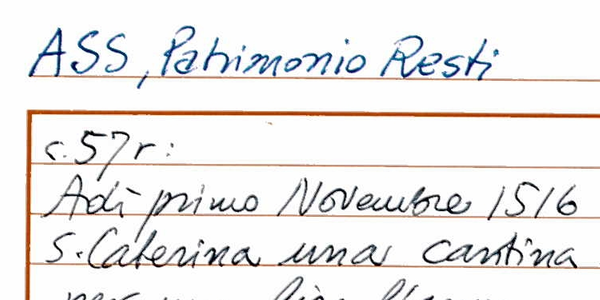 ASS, Patrimonio Resti
c. 57 r:
Adì primo Novembre 1516
S. Caterina una cantina
per una